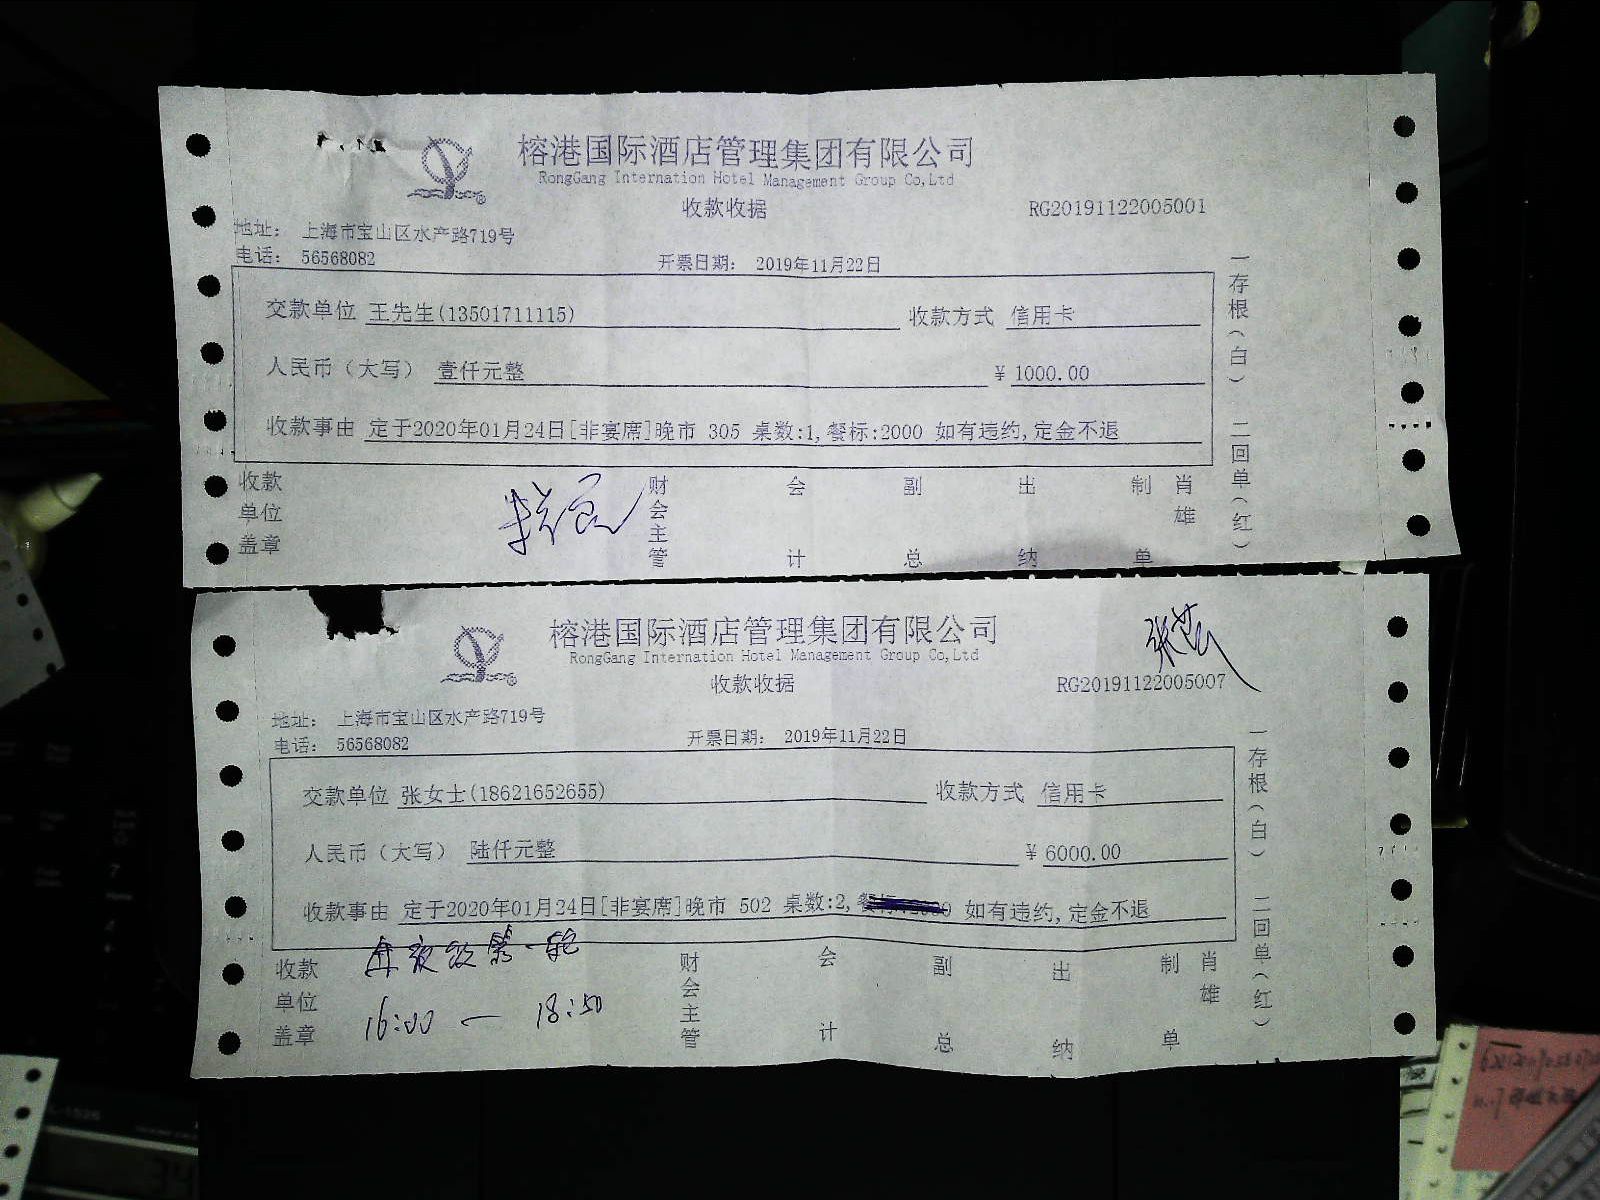 榕港国际酒店管理集团有限公司
RongGang Internation Hotel Management Group Co,Ltd
收款收据 RG20191122005001
地址： 上海市宝山区水产路719号
电话： 56568082 开票日期： 2019年11月22日
交款单位 王先生(13501711115) 收款方式 信用卡
人民币（大写） 壹仟元整 ¥ 1000.00
收款事由 定于2020年01月24日[非宴席]晚市 305 桌数:1,餐标:2000 如有违约,定金不退
收款单位盖章 财会主管 会计 副总 出纳 制单 肖雄
一存根(白) 二回单(红)
榕港国际酒店管理集团有限公司
RongGang Internation Hotel Management Group Co,Ltd
收款收据 RG20191122005007
地址： 上海市宝山区水产路719号
电话： 56568082 开票日期： 2019年11月22日
交款单位 张女士(18621652655) 收款方式 信用卡
人民币（大写） 陆仟元整 ¥ 6000.00
收款事由 定于2020年01月24日[非宴席]晚市 502 桌数:2, 如有违约,定金不退
年夜饭第一轮
16:00 — 18:50
收款单位盖章 财会主管 会计 副总 出纳 制单 肖雄
一存根(白) 二回单(红)